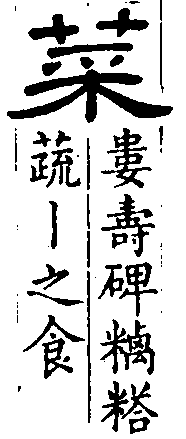 菜
婁壽碑
蔬丨之食